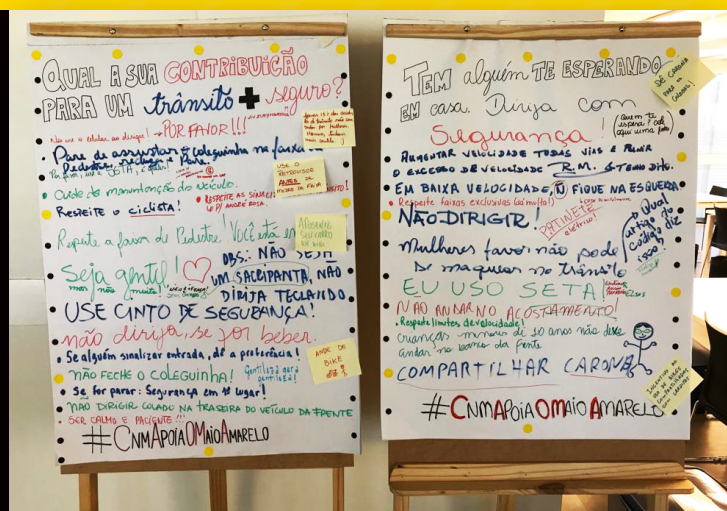 QUAL A SUA CONTRIBUIÇÃO
PARA UM trânsito + seguro?
Não use o celular ao dirigir! → POR FAVOR!!!
Pare de assustar o coleguinha na faixa
Pedestre, reduza e Pare.
Por favor, use a SETA,
USE O
RETROVISOR
ANTES DE
MUDAR DE FAIXA
• Cuide da manutenção do veículo.
• RESPEITE AS
• RESPEITE o ciclista!
P/ ANDRÉ ROSA.
Respeite a faixa de Pedestre! VOCÊ está em
• Seja gentil!
mas não muito!
OBS.: NÃO SEJA
UM SACRIPANTA, NÃO
DIRIJA TECLANDO.
• USE CINTO DE SEGURANÇA!
• não dirija, se for beber.
• Se alguém sinalizar entrada, dê a preferência!
ANDE DE
BIKE
• NÃO FECHE O COLEGUINHA!
Gentileza gera
gentileza!
• Se for parar: Segurança em 1º lugar!
• NÃO DIRIGIR COLADO NA TRASEIRA DO VEÍCULO DA FRENTE
• SER CALMO E PACIENTE!!!
#CNMAPOIAOMAIOAMARELO
TEM alguém TE ESPERANDO
EM casa. Dirija com
Segurança!
DE CARONA
PARA OS
COLEGAS!
Quem te
espera? Cole
aqui uma foto
• AUMENTAR VELOCIDADE TODAS VIAS E PUNIR
O EXCESSO DE VELOCIDADE. R.M. TENHO DITO.
• EM BAIXA VELOCIDADE, Ñ FIQUE NA ESQUERDA
• Respeite faixas exclusivas (dá multa!)
• NÃO DIRIGIR!
PATINETE
elétrico!
Qual
artigo do
código diz
isso?
• Mulheres favor não pode
se maquiar no trânsito
• EU USO SETA!
• NÃO ANDAR NO ACOSTAMENTO!
• Respeite limites de velocidade!
• crianças menores de 10 anos não deve
andar no banco da frente
• COMPARTILHAR CARONA
INCENTIVO AO
USO DE BIKES
COMPARTILHADAS
#CNMAPOIAOMAIOAMARELO